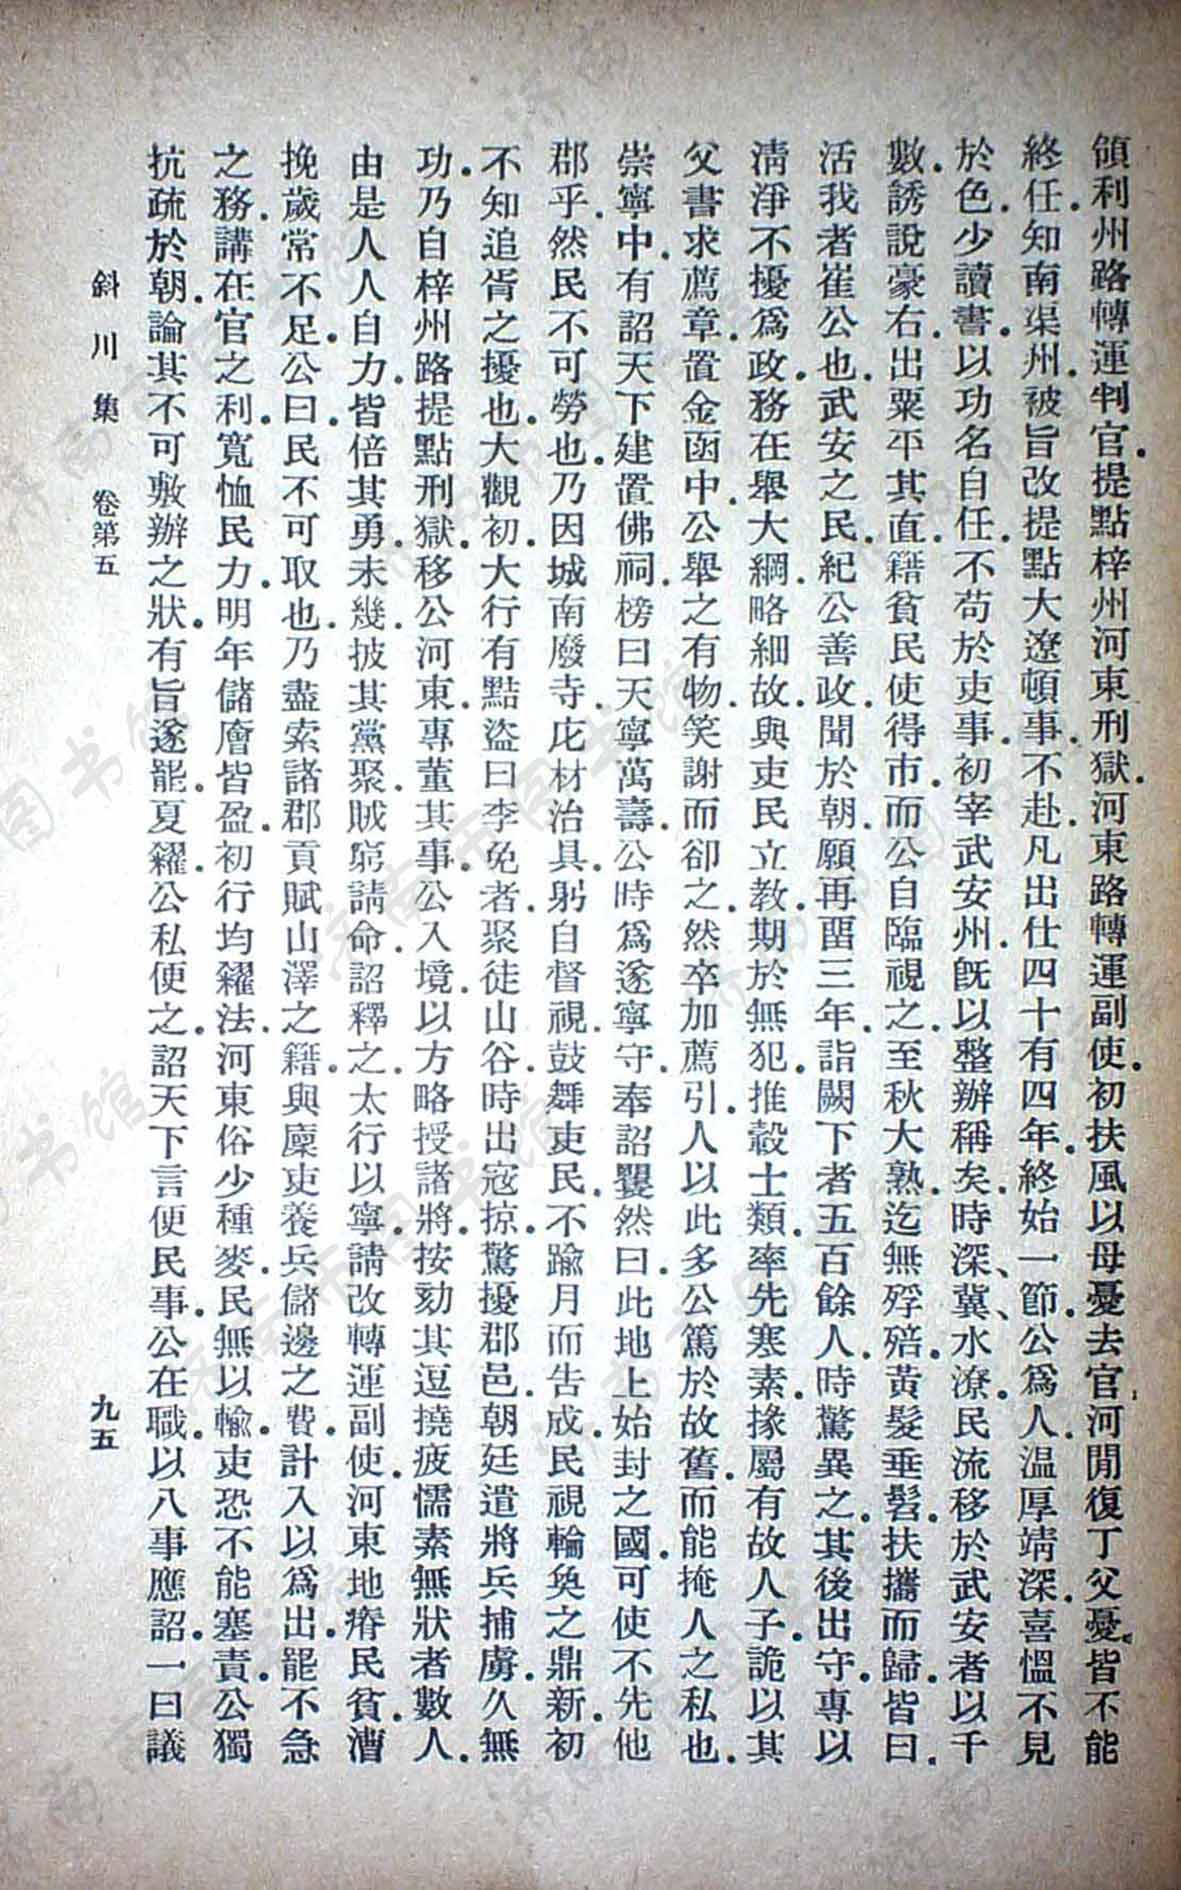 領利州路轉運判官.提點梓州河東刑獄.河東路轉運副使.初扶風以母憂去官.河閒復丁父憂.皆不能
終任.知南渠州.被旨改提點大遼頓事.不赴.凡出仕四十有四年.終始一節.公爲人.温厚靖深.喜慍不見
於色.少讀書.以功名自任.不苟於吏事.初宰武安州.旣以整辦稱矣.時深、冀、水潦.民流移於武安者以千
數.誘說豪右.出粟平其直.籍貧民使得市.而公自臨視之.至秋大熟.迄無殍殕.黃髮垂髫.扶攜而歸.皆曰.
活我者崔公也.武安之民.紀公善政.聞於朝.願再畱三年.詣闕下者五百餘人.時驚異之.其後出守.專以
淸淨不擾爲政.務在舉大綱.略細故.與吏民立教.期於無犯.推轂士類.率先寒素.掾屬有故人子.詭以其
父書求薦章.置金函中.公舉之有物.笑謝而卻之.然卒加薦引.人以此多公篤於故舊.而能掩人之私也.
崇寧中.有詔天下建置佛祠.榜曰天寧萬壽.公時爲遂寧守.奉詔矍然曰.此地上始封之國.可使不先他
郡乎.然民不可勞也.乃因城南廢寺.庀材治具.躬自督視.鼓舞吏民.不踰月而告成.民視輪奐之鼎新.初
不知追胥之擾也.大觀初.大行有點盜曰李免者.聚徒山谷.時出寇掠.驚擾郡邑.朝廷遣將兵捕虜.久無
功.乃自梓州路提點刑獄.移公河東.專董其事.公入境.以方略授諸將.按劾其逗撓疲懦素無狀者數人.
由是人人自力.皆倍其勇.未幾.披其黨聚.賊窮請命.詔釋之.太行以寧.請改轉運副使.河東地瘠民貧.漕
挽歲常不足.公曰.民不可取也.乃盡索諸郡貢賦山澤之籍.與廩吏養兵儲邊之費.計入以爲出.罷不急
之務.講在官之利.寬恤民力.明年儲廥皆盈.初行均糴法.河東俗少種麥.民無以輸.吏恐不能塞責.公獨
抗疏於朝.論其不可敷辦之狀.有旨遂罷.夏糴.公私便之.詔天下言便民事.公在職.以八事應詔.一曰議
斜川集 卷第五 九五